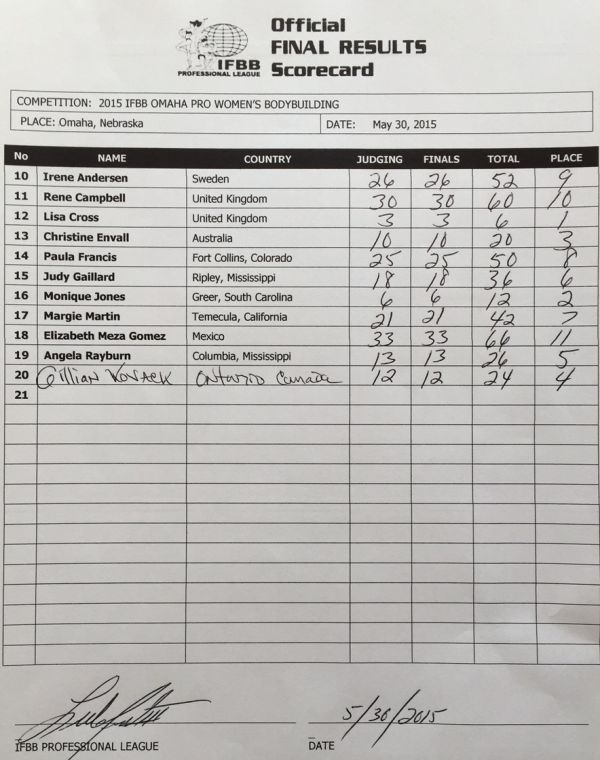 Official
FINAL RESULTS
Scorecard
IFBB
PROFESSIONAL LEAGUE
COMPETITION: 2015 IFBB OMAHA PRO WOMEN'S BODYBUILDING
PLACE: Omaha, Nebraska DATE: May 30, 2015
No NAME COUNTRY JUDGING FINALS TOTAL PLACE
10 Irene Andersen Sweden 26 26 52 9
11 Rene Campbell United Kingdom 30 30 60 10
12 Lisa Cross United Kingdom 3 3 6 1
13 Christine Envall Australia 10 10 20 3
14 Paula Francis Fort Collins, Colorado 25 25 50 8
15 Judy Gaillard Ripley, Mississippi 18 18 36 6
16 Monique Jones Greer, South Carolina 6 6 12 2
17 Margie Martin Temecula, California 21 21 42 7
18 Elizabeth Meza Gomez Mexico 33 33 66 11
19 Angela Rayburn Columbia, Mississippi 13 13 26 5
20 Gillian Kovack Ontario Canada 12 12 24 4
21
5/30/2015
IFBB PROFESSIONAL LEAGUE DATE